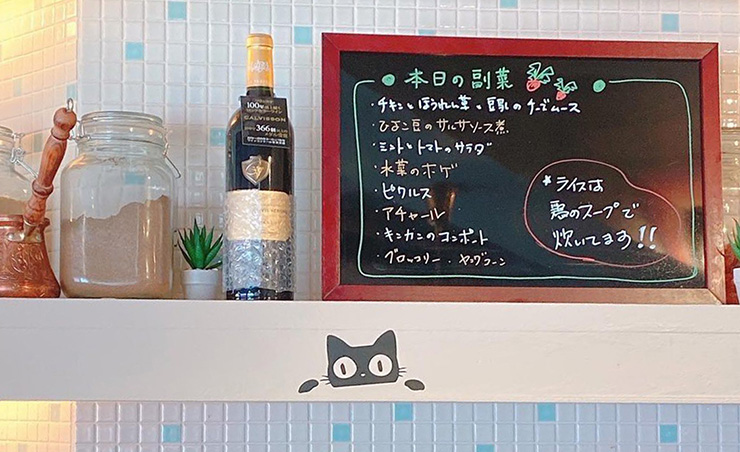 100
CALVISSON
366
本日の副菜
・チキンとほうれん草と豆乳のチーズムース
・ひよこ豆のサルサソース煮
・ミントとトマトのサラダ
・水草のホゲ
・ピクルス
・アチャール
・キンカンのコンポート
・ブロッコリー・ヤングコーン
*ライスは
鶏のスープで
炊いてます!!